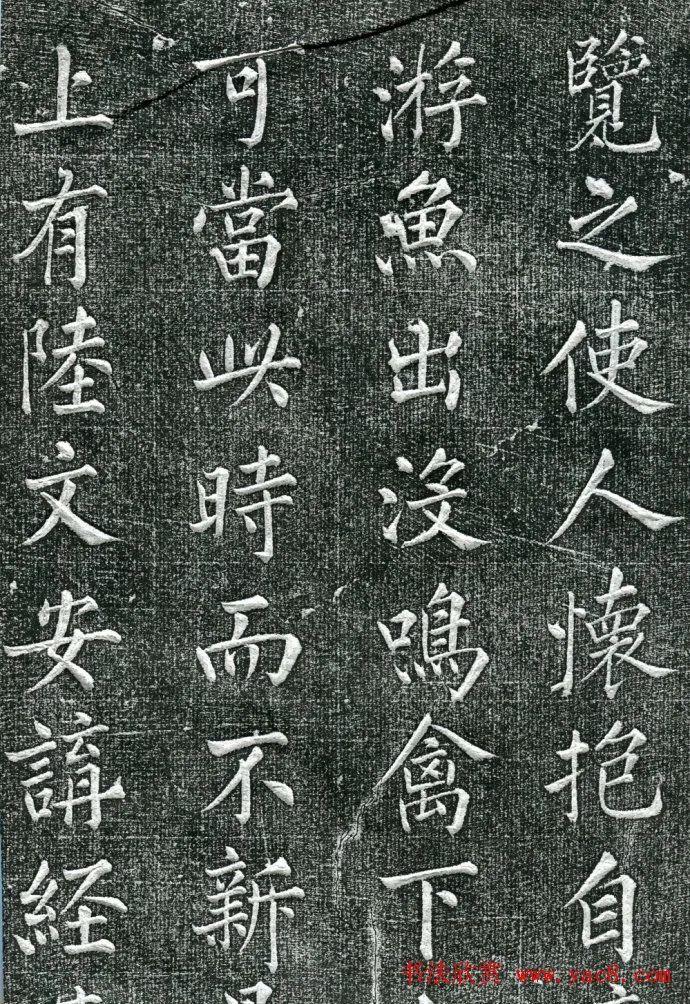 覽之使人懷抱自
游魚出没鳴禽下
可當此時而不新
上有陸文安講経
书法欣赏 www.yac8.com